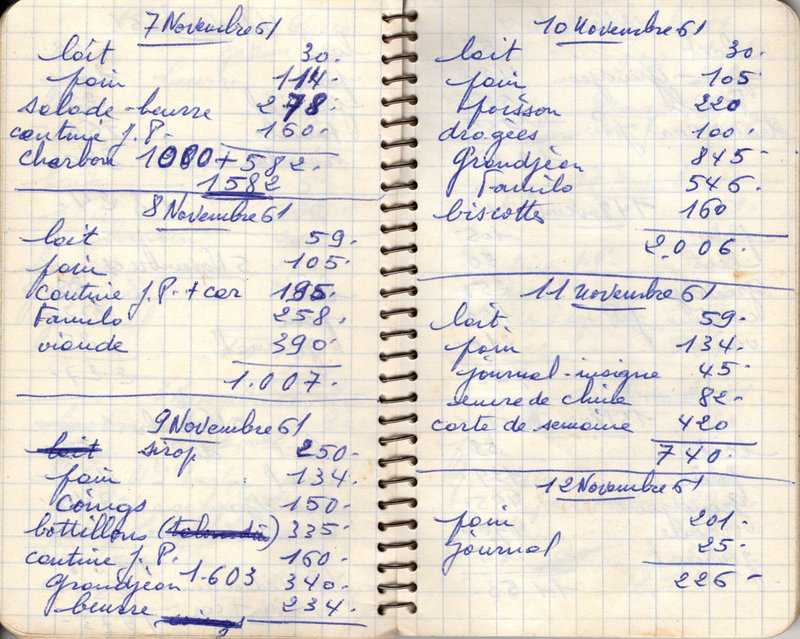 7 Novembre 61
lait 30.
pain 114.
salade-beurre 278.
cantine J.P. 160.
charbon 1000 + 582.
1582
8 Novembre 61
lait 59.
pain 105.
cantine J.P. + car 195.
Familo 258.
viande 390.
1.007.
9 Novembre 61
lait sirop 250.
pain 134.
Coings 150.
bottillons ( ) 335.
cantine J.P. 160.
Grandjean 1.603 340.
beurre 234.
10 Novembre 61
lait 30.
pain 105
poisson 220
dragées 100.
Grandjean 845
Familo 546.
biscottes 160
2.006.
11 Novembre 61
lait. 59.
pain 134.
journal-insigne 45.
encre de chine 82-
carte de semaine 420
740.
12 Novembre 61
pain 201.
journal 25.
226-